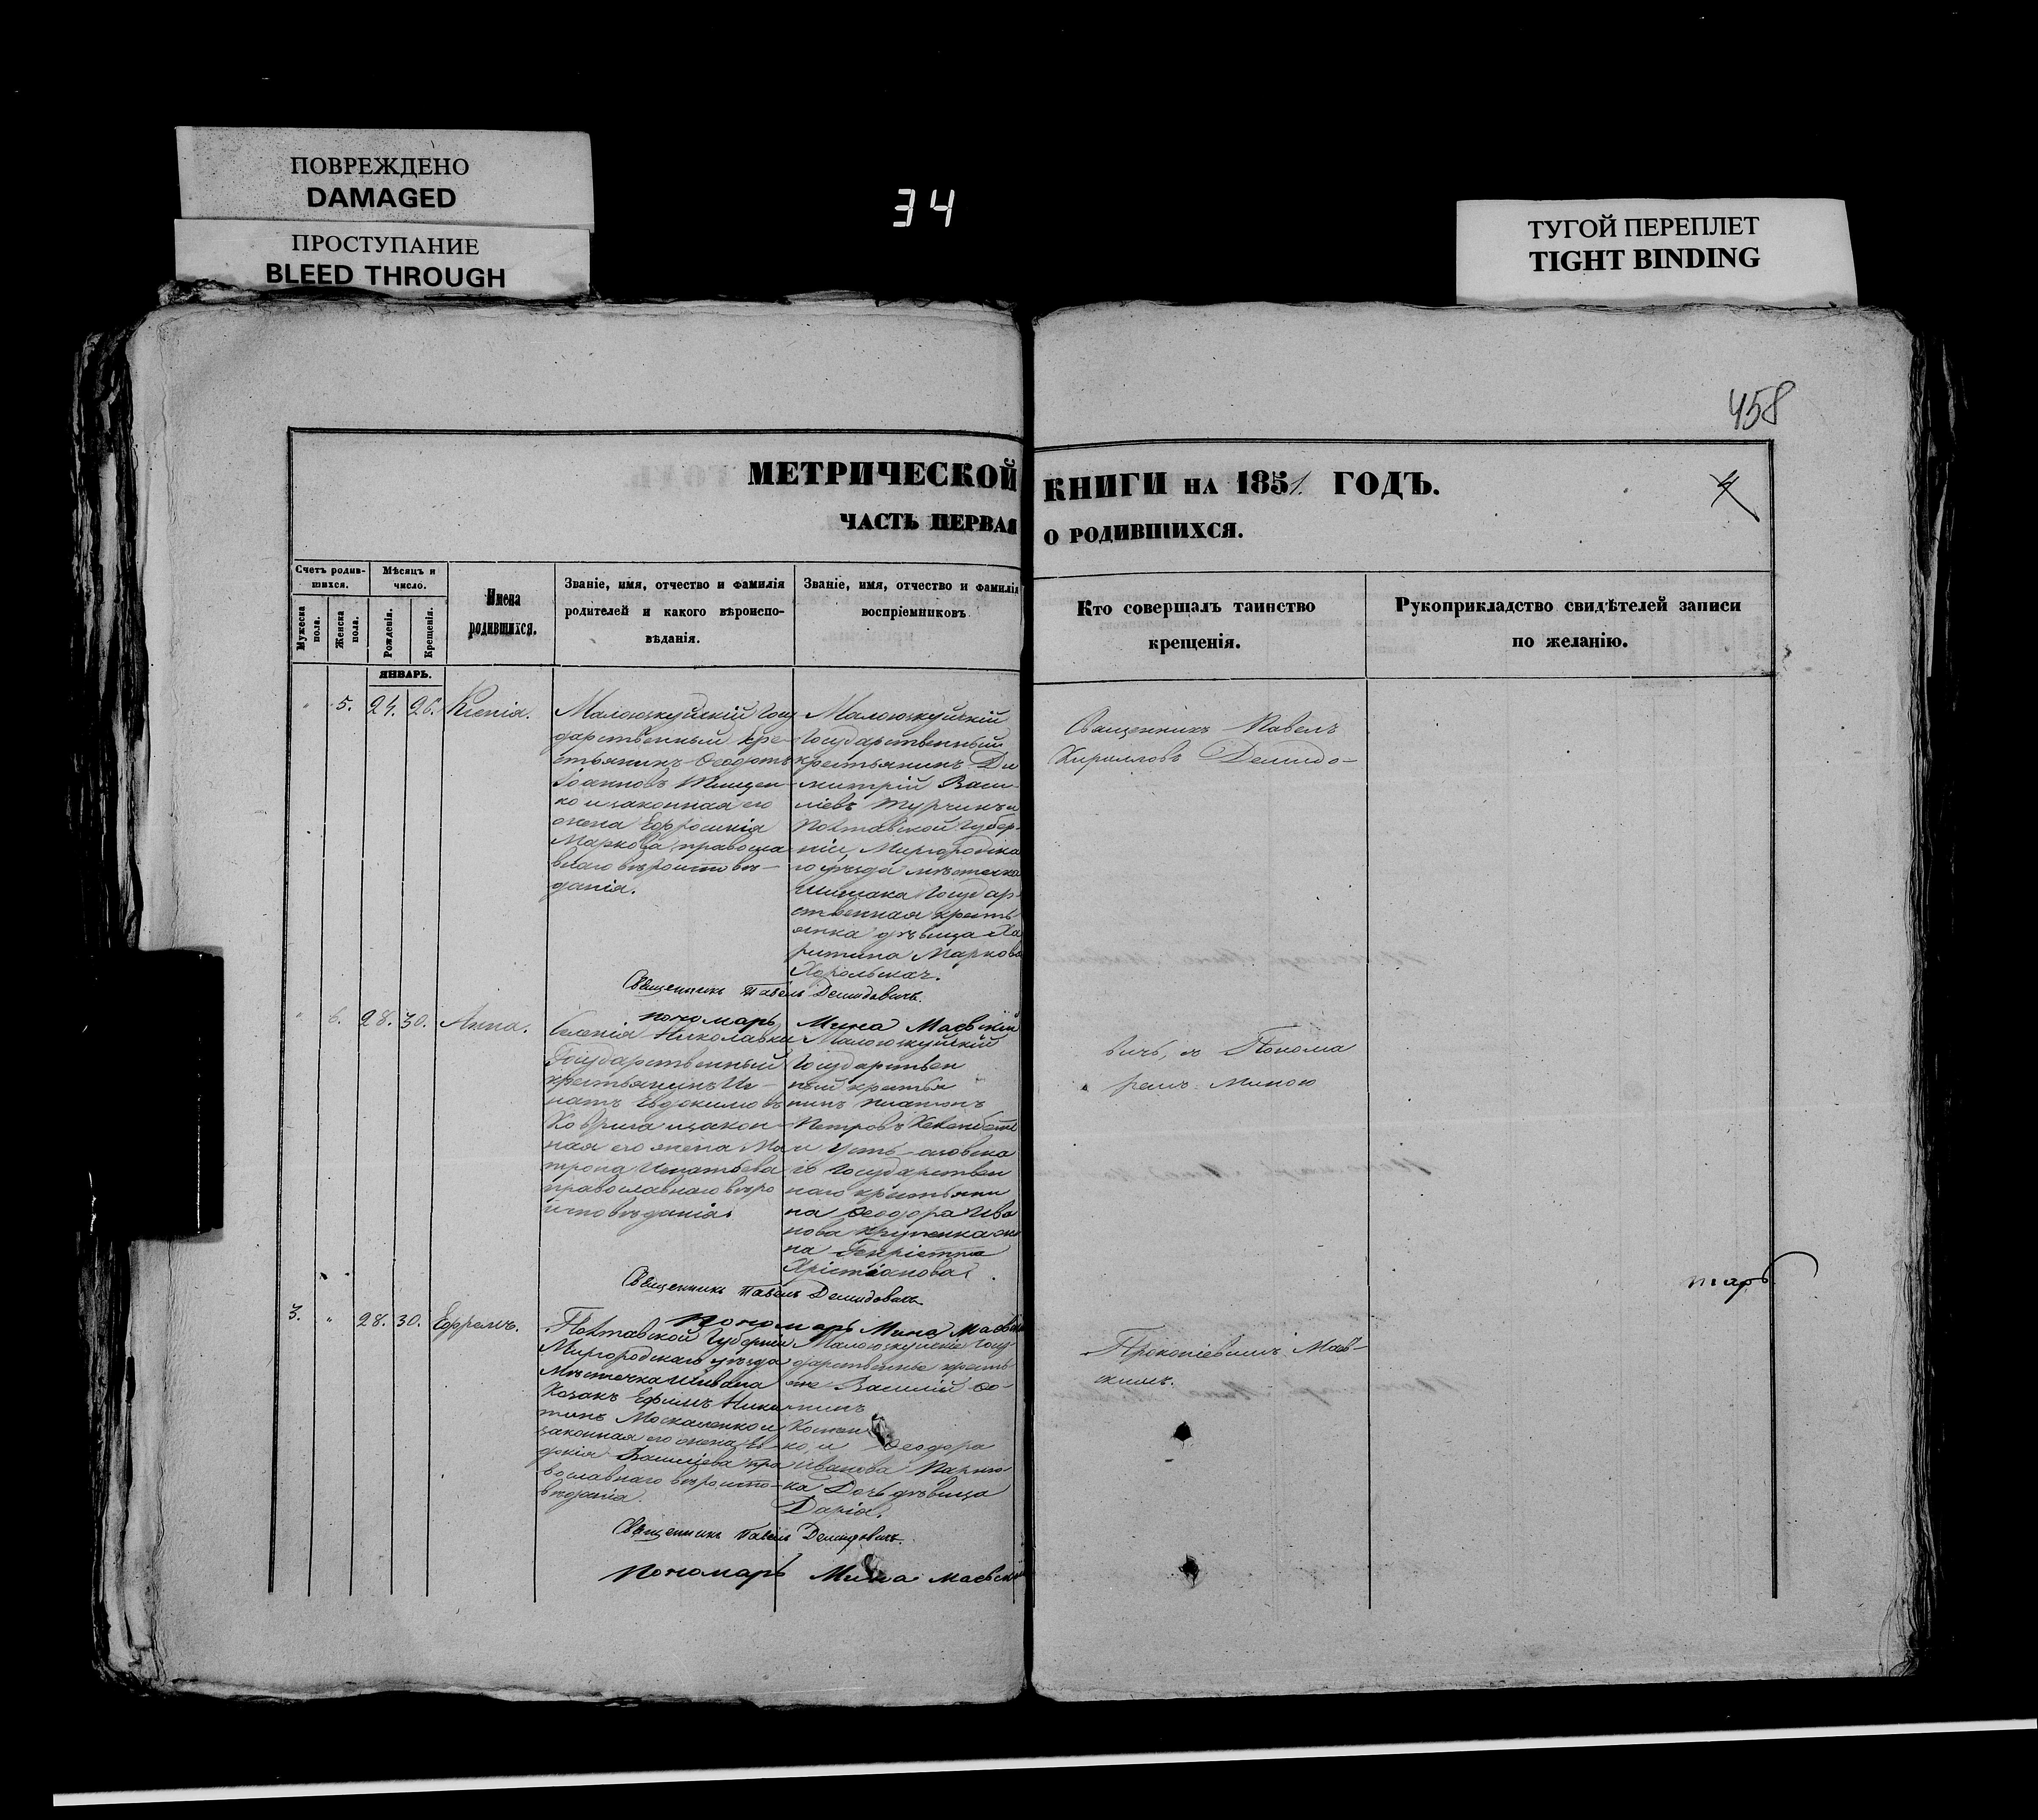 ПОВРЕЖДЕНО
DAMAGED
ПРОСТУПАНИЕ
BLEED THROUGH
34
ТУГОЙ ПЕРЕПЛЕТ
TIGHT BINDING
458
МЕТРИЧЕСКОЙ КНИГИ НА 1851. ГОДЪ.
4
ЧАСТЬ ПЕРВАЯ О РОДИВШИХСЯ.
Счетъ родив-
шихся.
Мужеска
пола.
Женска
пола.
Мѣсяцъ и
число.
Рожденія.
Крещенія.
Имена
родившихся.
Званіе, имя, отчество и фамилія
родителей и какого вѣроиспо-
вѣданія.
Званіе, имя, отчество и фамилія
воспріемниковъ
Кто совершалъ таинство
крещенія.
Рукоприкладство свидѣтелей записи
по желанію.
ЯНВАРЬ.
5. 24. 26. Ксенія.
Госу
дарственный кре-
стьянинъ Ѳеодотъ
Іоанновъ
ко и законная его
жена Ефросинія
Маркова, правосла
внаго вѣроисповѣ-
данія.
Государственный
крестьянинъ Ди
митрій Васи-
ліевъ Турчинъ и
Полтавской Губер-
ніи, Миргородска
го уѣзда мѣстечка
Шишака Государ-
ственная кресть
янка дѣвица Ха
ритина Маркова
Хорольская.
Священникъ Павелъ
Кирилловъ Демидо-
Священникъ Павелъ Демидовичъ.
пономарь Мина Маевскій
6. 28. 30. Анна.
Государственный
крестьянинъ Иг-
натъ Евдокимовъ
Коврига и закон-
ная его жена Ма
трона Игнатьева
православнаго вѣро
исповѣданія.
Государствен
ный крестья
нинъ Платонъ
Петровъ
го Государствен
наго крестьяни
на Ѳеодора Ива
нова
на Генріетта
Христіанова.
вичъ, съ Понома
ремъ Миною
Священникъ Павелъ Демидовичъ
Пономарь Мина Маевскій
3. " 28. 30. Ефремъ.
Полтавской Губерніи
Миргородскаго уѣзда
Мѣстечка
Козакъ Ефимъ Ники
тинъ Москаленко и
законная его жена Ев
докія Василіева пра
вославнаго вѣроиспо-
вѣданія.
Госу-
дарственные кресть
яне Василій Ѳо-
минъ
ко, и Ѳеодора
Иванова
ка Дочь дѣвица
Дарія.
Прокопіевимъ Маев-
скимъ.
Священникъ Павелъ Демидовичъ.
Пономарь Мина Маевскій